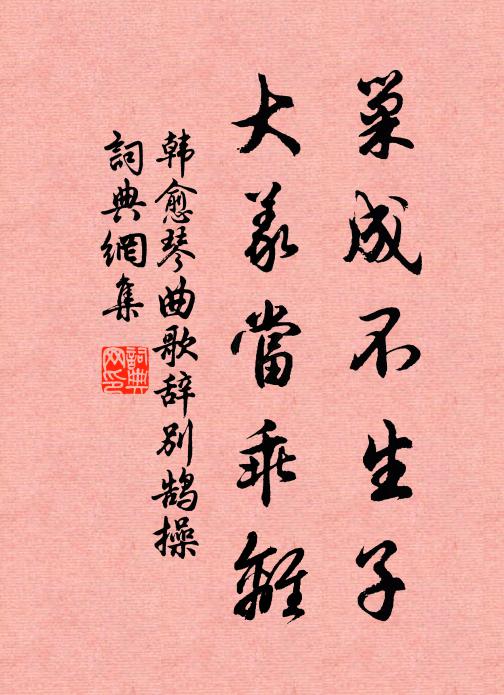 巢成不生子
大義當乖離
韩愈琴曲歌辞别鹄操
詞典網集
詞典网印